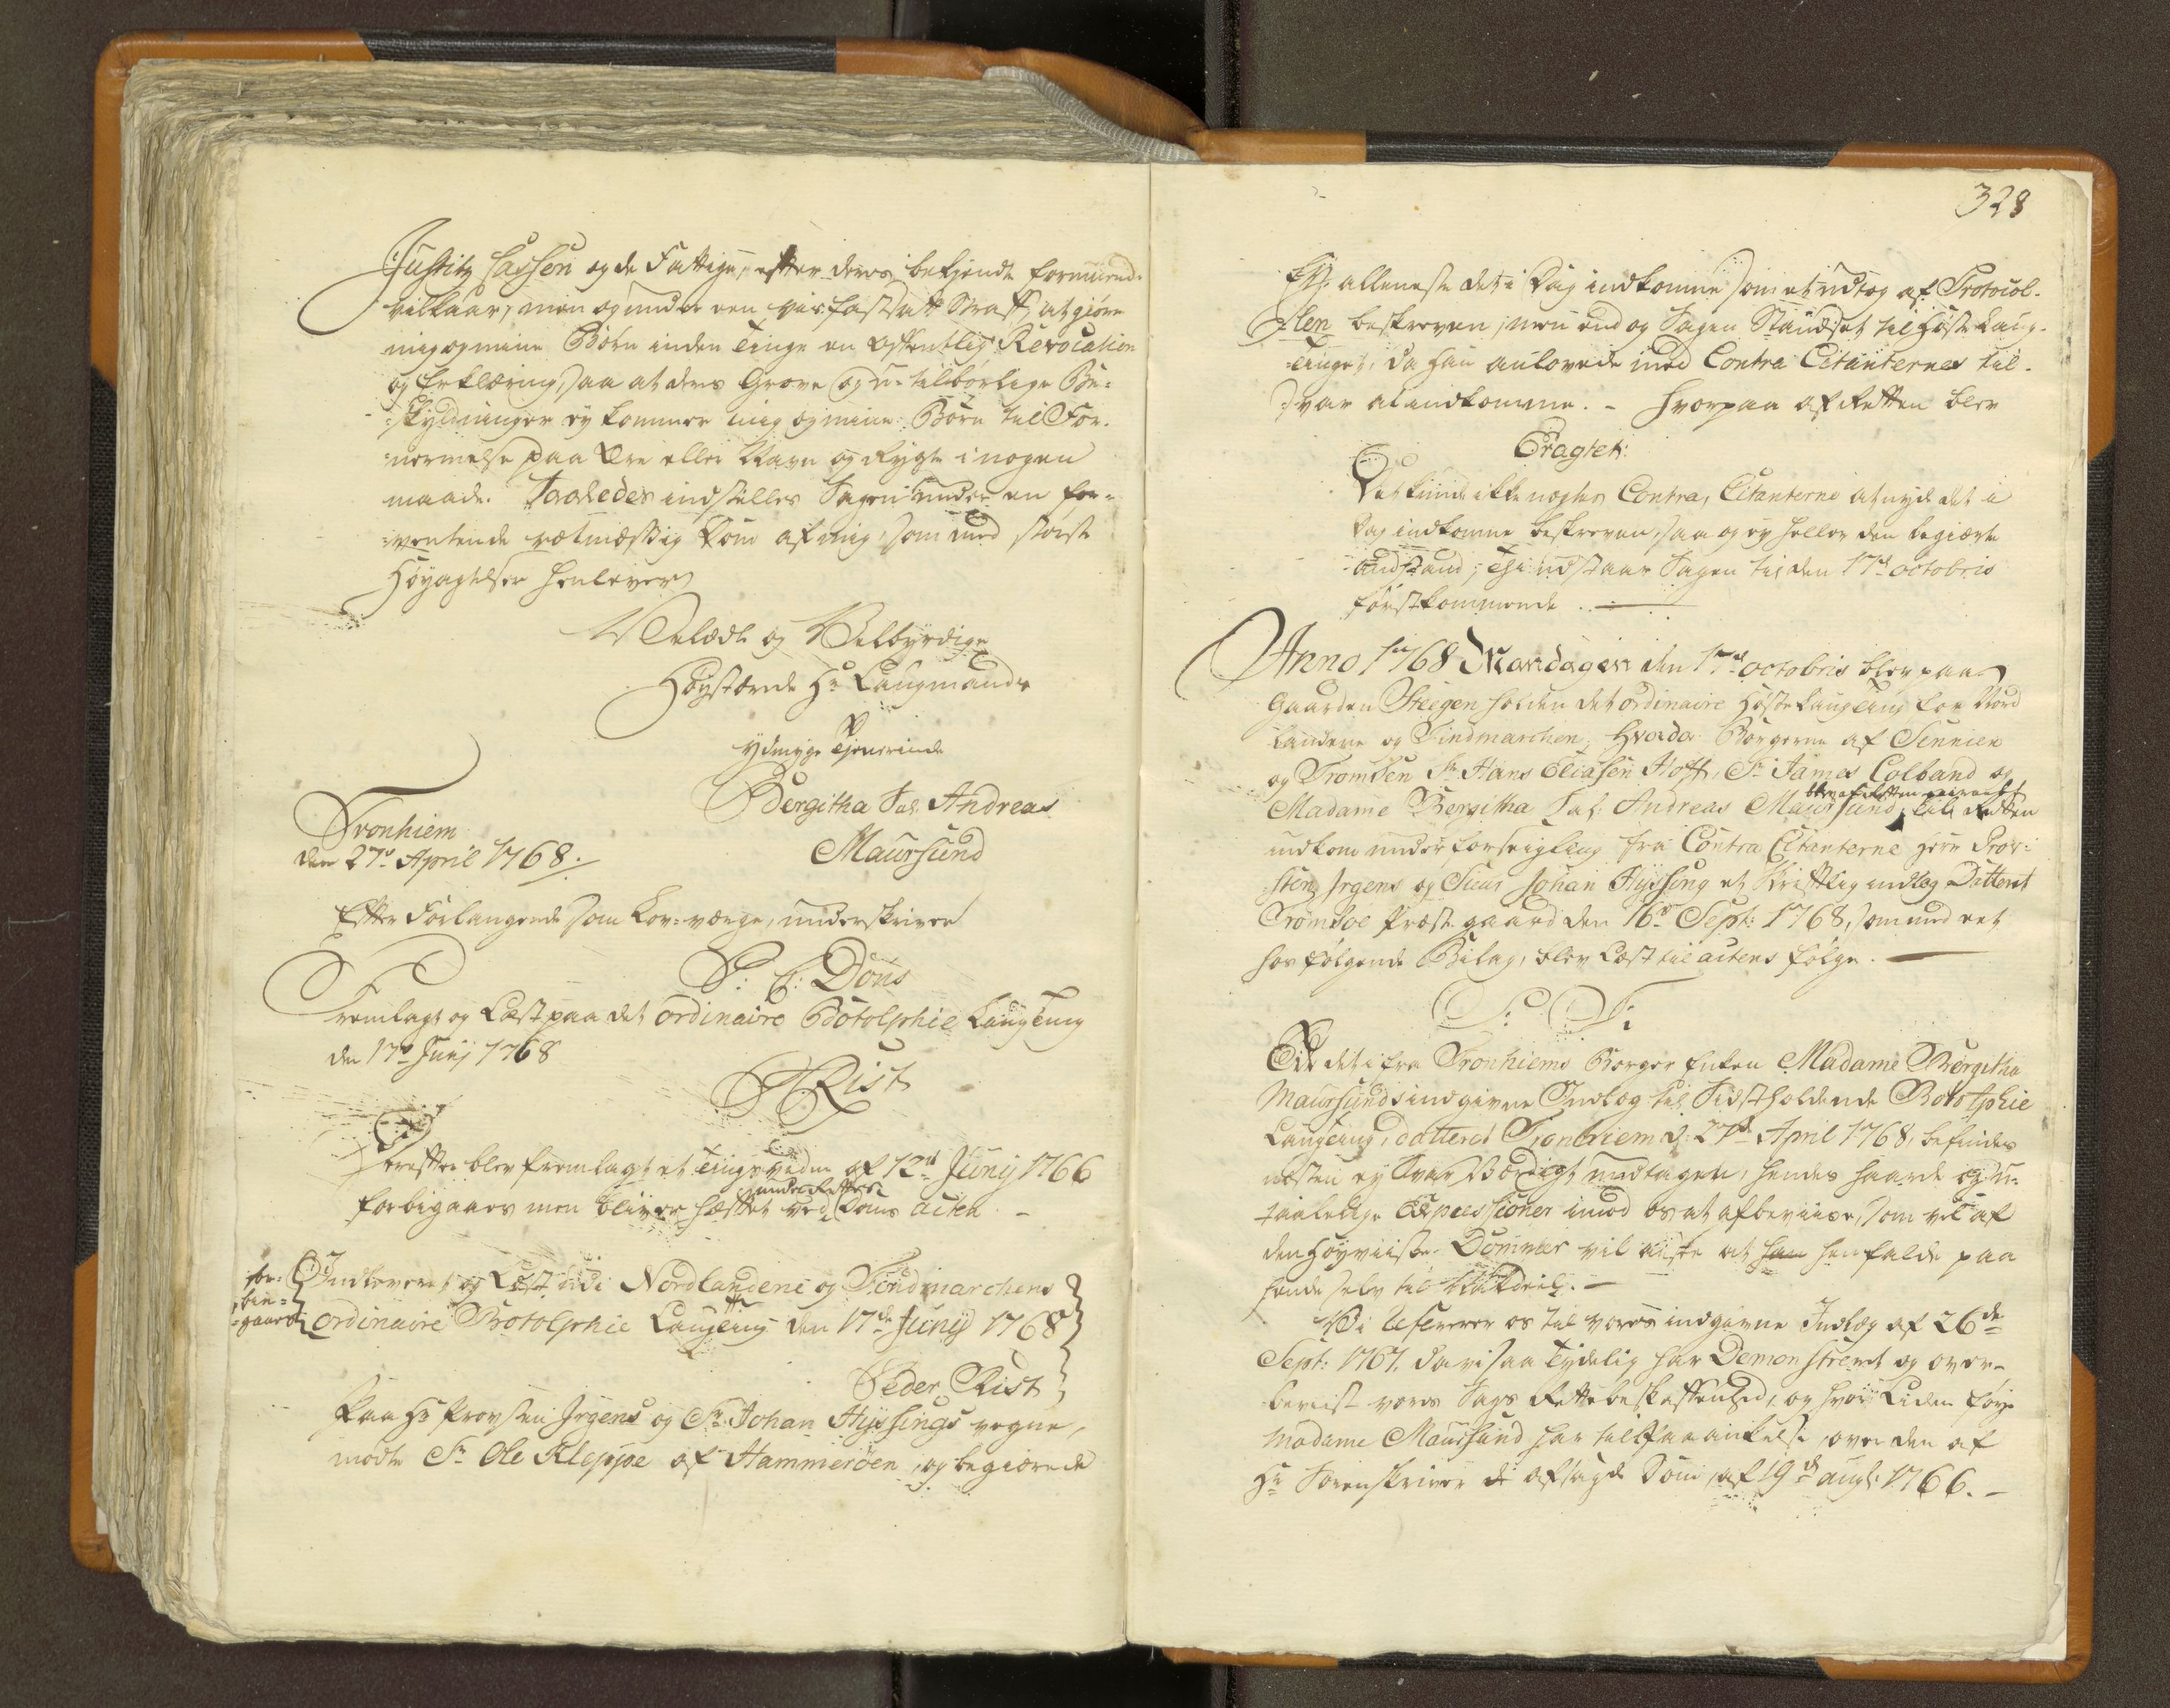 Justitz Cassen og de Fattige, efter deres bekiendte formuends
vilkaar, men og under en vis fastsatt Straff, at giøre
mig og mine Børn inden Tinge en offentlig Revocation
og Erklæring, saa at deres Grove og u-tilbørlige Be-
skyldninger ey kommer mig og mine Børn til For-
nermelse paa Ære eller Navn og Rygte i nogen
maade. Saaledes indstilles Sagen under en for-
ventende retmæssig Dom af mig, som med største
Høyagtelse henlever
Velædle og Velbyrdige
Høystærede Hr Laugmands
ydmyge Tjenerinde
Bergitha Sal. Andreas
Maursund
Tronhiem
den 27de April 1768.
Efter Forlangende som Lov-værge, underskriver
P: E: Døns
Fremlagt og Læst paa det ordinaire Bototphie Laugting
den 17de Junij 1768
PRist
Derefter blev fremlagt et Tingsvidne af 12te Junij 1766
under Rettens
forbigaaes men bliver hæftet ved Doms acten. -
for-
bie-
gaaes
Indleveret og Læst udi Nordlandene og Findmarchens
ordinaire Botolphie Laugting den 17de Junij 1768
Peder Rist
Paa Hr Provsten Irgens og Sr. Johan Hysings vegne,
mødte Sr. Ole Kleppe af Hammerøen, og begiærede
328
Ey alleneste det i Dag indkomne som et udtog af Protocol-
len beskreven, men end og Sagen Standset til Høste Laug-
tinget, da han anlovede med Contra Citanternes til-
svar at indkomme. - Hvorpaa af Retten blev
Eragtet:
Det kunde ikke nægtes Contra Citanterne at nyde det i
Dag indkomne beskreven, saa og ey heller den begiærte
udstand; Thi udstaar Sagen til den 17de octobris
førstkommende.
Anno 1768 Mandagen den 17de octobris blev paa
Gaarden Steegen holden det ordinaire Høste Laugting for Nord
Landene og Findmarchen, hvorda Borgerne af Sennien
og Tromsen Sr. Hans Eliasen Hoff, Sr. James Colband og
blev af Retten
Madame Bergitha Sal: Andreas Maursund, til Retten
indkom under forseigling fra Contra Citanterne Herr Prov-
sten Irgens og Sieur Johan Hysing et skriftlig indlæg Datteret
Tromsøe Præstegaard den 16de Sept: 1768, som med et
hosfølgende Bilag, blev Læst til actens følge.
P: T:
Ud det i fra Tronhiems Borger Enken Madame Bergitha
Maursunds indgivne Indlæg til Sidstholdende Bototphie
Laugting, datteret Tronhiem d: 27de April 1768, befindes
næsten ey Svar Værdigt undtagen, hendes haarde og u-
taalelige Expressioner imod os at afbeviise, som vel af
den Høyviise Dommer vil ansees at han henfalde paa
hende selv til Udeel.
Vi refererer os til vores indgivne Indlæg af 26de
Sept: 1767, da vi saa tydelig har Demonstreret og over-
beviist vores Sags Rette beskaffenhed, og hvor Liden føye
Madame Maursund har til Paaankelse over den af
Hr Sorenskriver de afsagde Dom, af 19de augt: 1766. -